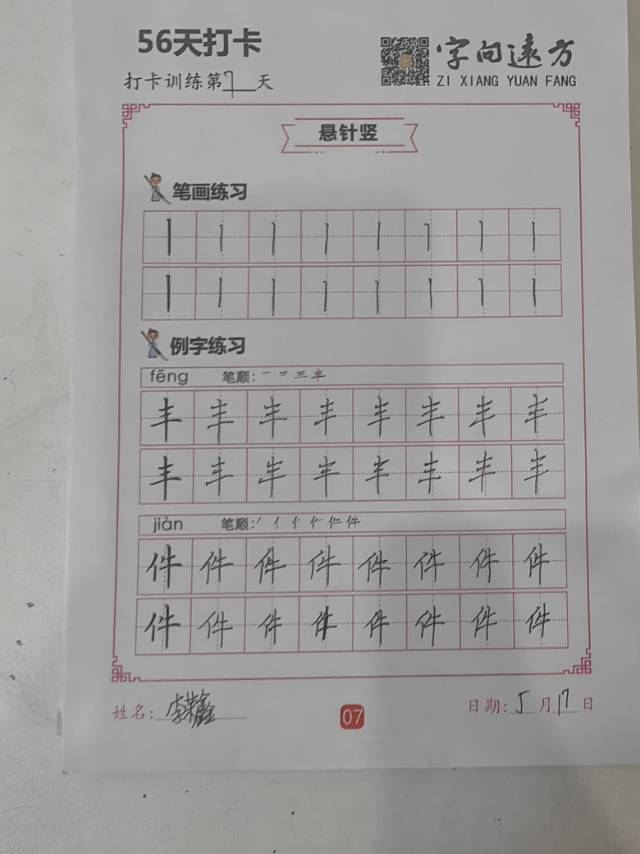 56天打卡
字向远方
ZI XIANG YUAN FANG
打卡训练第7天
悬针竖
笔画练习
丨丨丨丨丨丨丨丨
丨丨丨丨丨丨丨丨
例字练习
fēng 笔顺: 一 二 三 丰
丰丰丰丰丰丰丰丰
丰丰丰丰丰丰丰丰
jiàn 笔顺: 丿 亻
件件件件件件件件
件件件件件件件件
姓名: 李荣鑫
07
日期: 5月17日